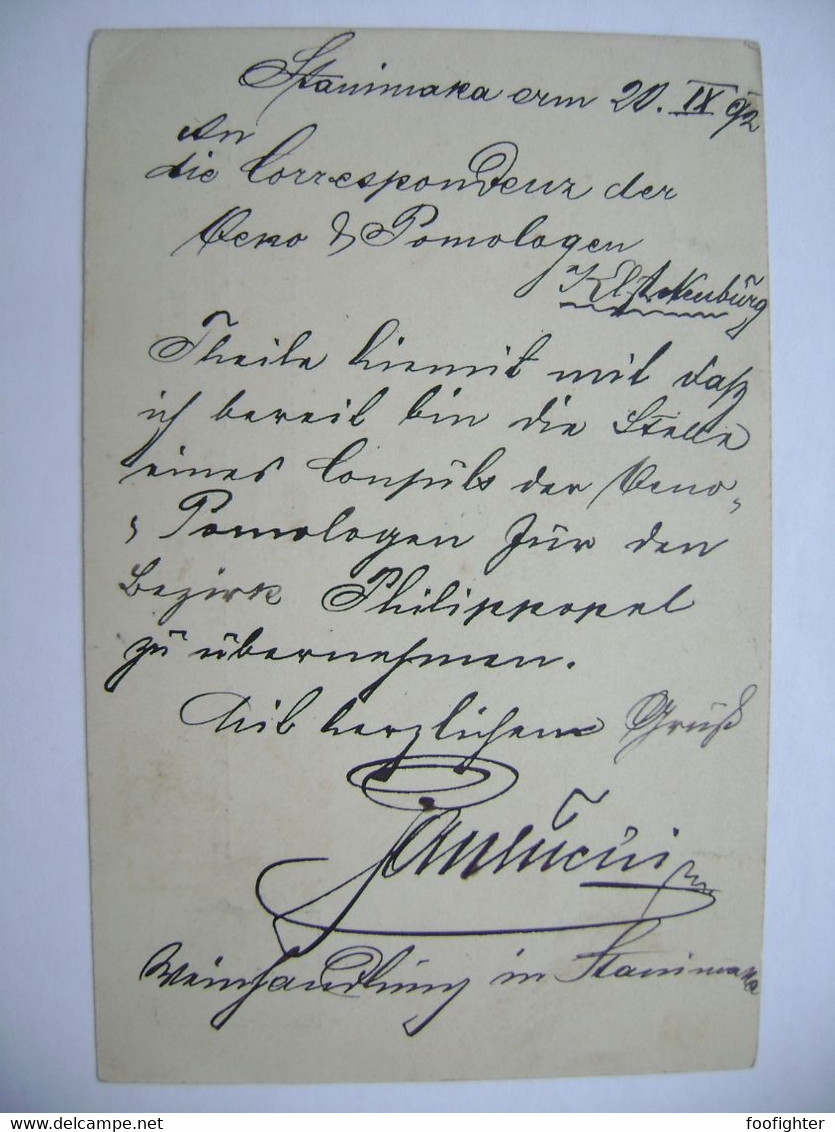 Stanimaka am 20. IX 92
An
die Correspondenz der
Oeno & Pomologen
Klst. Neuburg
Theile hiemit mit daß
ich bereit bin die Stelle
eines Consuls der Oeno-
-Pomologen für den
Bezirk Philippopel
zu übernehmen.
Mit herzlichem Gruß
Weinhandlung in Stanimaka
foofighter